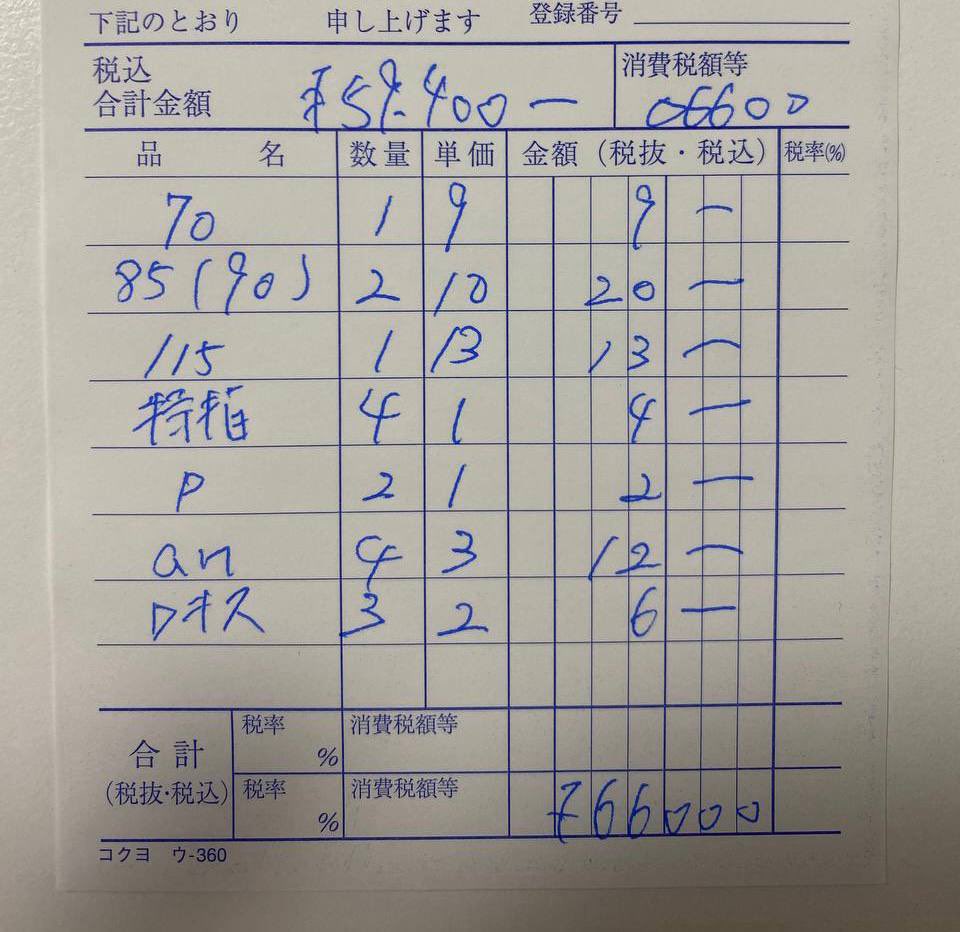 下記のとおり 申し上げます 登録番号
税込 消費税額等
合計金額 ¥59.400 ー 06600
品 名 数量 単価 金額（税抜・税込） 税率(%)
70 1 9 9 ー
85(90) 2 10 20 ー
115 1 13 13 ー
4 1 4 ー
P 2 1 2 ー
an 4 3 12 ー
ロオス 3 2 6 ー
税率 消費税額等
合計 %
(税抜・税込) 税率 消費税額等 ¥66000
%
コクヨ ウ-360